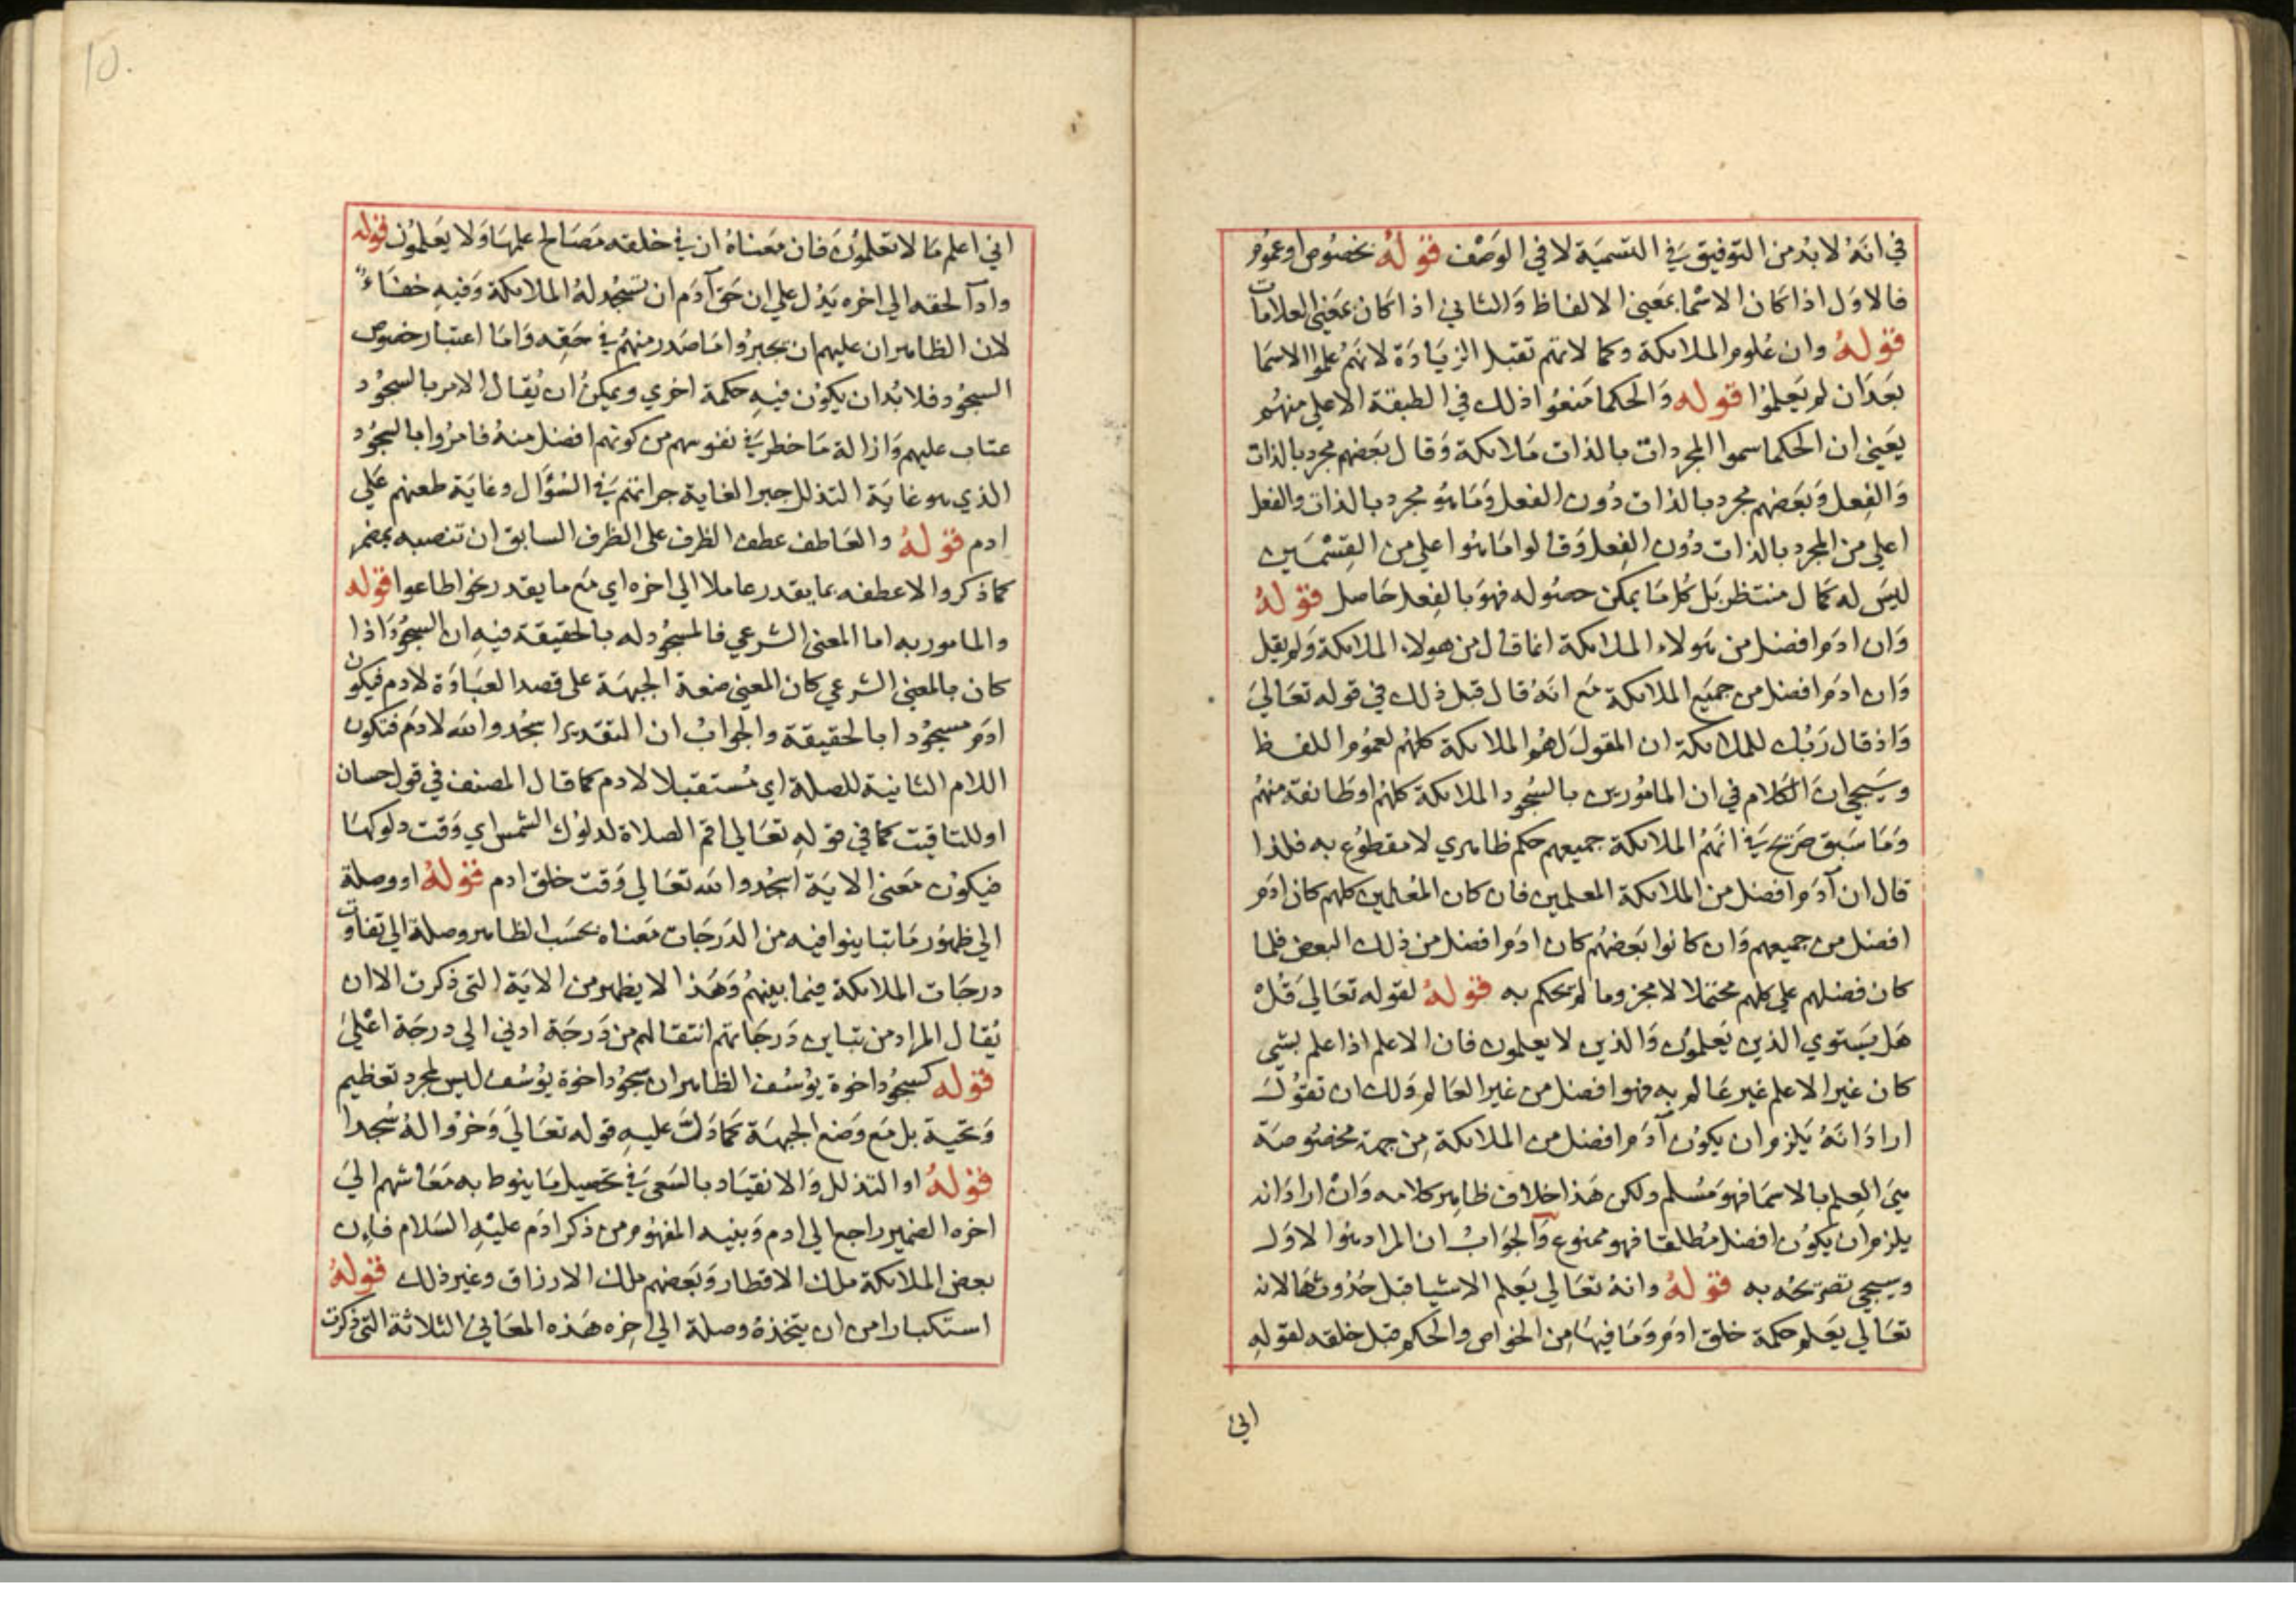 في انه لا بد من التوفيق في التسمية لا في الوصف قوله بخصوص او عموم
فالاول اذا كان الاسما بمعني الالفاظ والثاني اذا كان بمعني العلامات
قوله وان علوم الملائكة وكمالاتهم تقبل الزيادة لانهم علموا الاسما
بعد ان لم يعلموا قوله والحكما منعوا ذلك في الطبقة الاعلي منهم
يعني ان الحكما سموا المجردات بالذات ملائكة وقال بعضهم مجرد بالذات
والفعل وبعضهم مجرد بالذات دون الفعل وما هو مجرد بالذات والفعل
اعلي من المجرد بالذات دون الفعل وقالوا ما هو اعلي من القسمين
ليس له كمال منتظر بل كل ما يمكن حصوله فهو بالفعل حاصل قوله
وان ادم افضل من هولاء الملائكة انما قال من هولاء الملائكة ولم يقل
وان ادم افضل من جميع الملائكة مع انه قال قبل ذلك في قوله تعالي
واذ قال ربك للملائكة ان المقول لهم الملائكة كلهم لعموم اللفظ
وسيجي ان الكلام في ان المامورين بالسجود الملائكة كلهم او طائفة منهم
وما سبق صريح في انهم الملائكة جميعهم حكم ظاهري لا مقطوع به فلذا
قال ان آدم افضل من الملائكة المعلمين فان كان المعلمين كلهم كان ادم
افضل من جميعهم وان كانوا بعضهم كان ادم افضل من ذلك البعض فلما
كان فضلهم علي كلهم محتملا لا مجزوما لم يحكم به قوله لقوله تعالي قل
هل يستوي الذين يعلمون والذين لا يعلمون فان الاعلم اذا علم بشي
كان غير الاعلم غير عالم به فهو افضل من غير العالم ولك ان تقول
اراد انه يلزم ان يكون آدم افضل من الملائكة من جهة مخصوصة
هي العلم بالاسما فهو مسلم ولكن هذا خلاف ظاهر كلامه وان اراد انه
يلزم ان يكون افضل مطلقا فهو ممنوع والجواب ان المراد هو الاول
وسيجي تصريحه به قوله وانه تعالي يعلم الاشيا قبل حدوثها لانه
تعالي يعلم حكمة خلق ادم وما فيها من الخواص والحكم قبل خلقه لقوله
اني
10.
اني اعلم ما لا تعلمون فان معناه ان في خلقه مصالح علمها ولا يعلمون قوله
واداً لحقه الي اخره يدل علي ان حق آدم ان تسجد له الملائكة وفيه خفاء
لان الظاهر ان عليهم ان يجبروا ما صدر منهم في حقه واما اعتبار خصوص
السجود فلا بد ان يكون فيه حكمة اخري ويمكن ان يقال الامر بالسجود
عتاب عليهم وازالة ما خطر في نفوسهم من كونهم افضل منه فامروا بالسجود
الذي هو غاية التذلل جبر الغاية جراتهم في السؤال وغاية طعنهم علي
ادم قوله والعاطف عطف الظرف علي الظرف السابق ان تنصبه بمضمر
كما ذكر والا عطفه بما يقدر عاملا الي اخره اي مع ما يقدر نحو اطاعوا قوله
والمامور به اما المعني الشرعي فالمسجود له بالحقيقة فيه ان السجود اذا
كان بالمعني الشرعي كان المعني ضعة الجبهة علي قصد العبادة لادم فيكون
ادم مسجودا بالحقيقة والجواب ان التقدير اسجدوا لله لادم فتكون
اللام الثانية للصلة اي مستقبلا لادم كما قال المصنف في قول حسان
او للتاقيت كما في قوله تعالي اقم الصلاة لدلوك الشمس اي وقت دلوكها
فيكون معني الاية اسجدوا لله تعالي وقت خلق ادم قوله او وصلة
الي ظهور ما تباينوا فيه من الدرجات معناه بحسب الظاهر وصلة الي تفاوت
درجات الملائكة فيما بينهم وهذا لا يظهر من الاية التي ذكرت الا ان
يقال المراد من تباين درجاتهم انتقالهم من درجة ادني الي درجة اعلي
قوله كسجود اخوة يوسف الظاهر ان سجود اخوة يوسف ليس لمجرد تعظيم
وتحية بل مع وضع الجبهة كما دلت عليه قوله تعالي وخروا له سجدا
قوله او التذلل والانقياد بالسعي في تحصيل ما ينوط به معاشهم الي
اخره الضمير راجع الي ادم وبنيه المفهوم من ذكر ادم عليه السلام فان
بعض الملائكة ملك الاقطار وبعضهم ملك الارزاق وغير ذلك قوله
استكبارا من ان يتخذه وصلة الي اخره هذه المعاني الثلاثة التي ذكرت